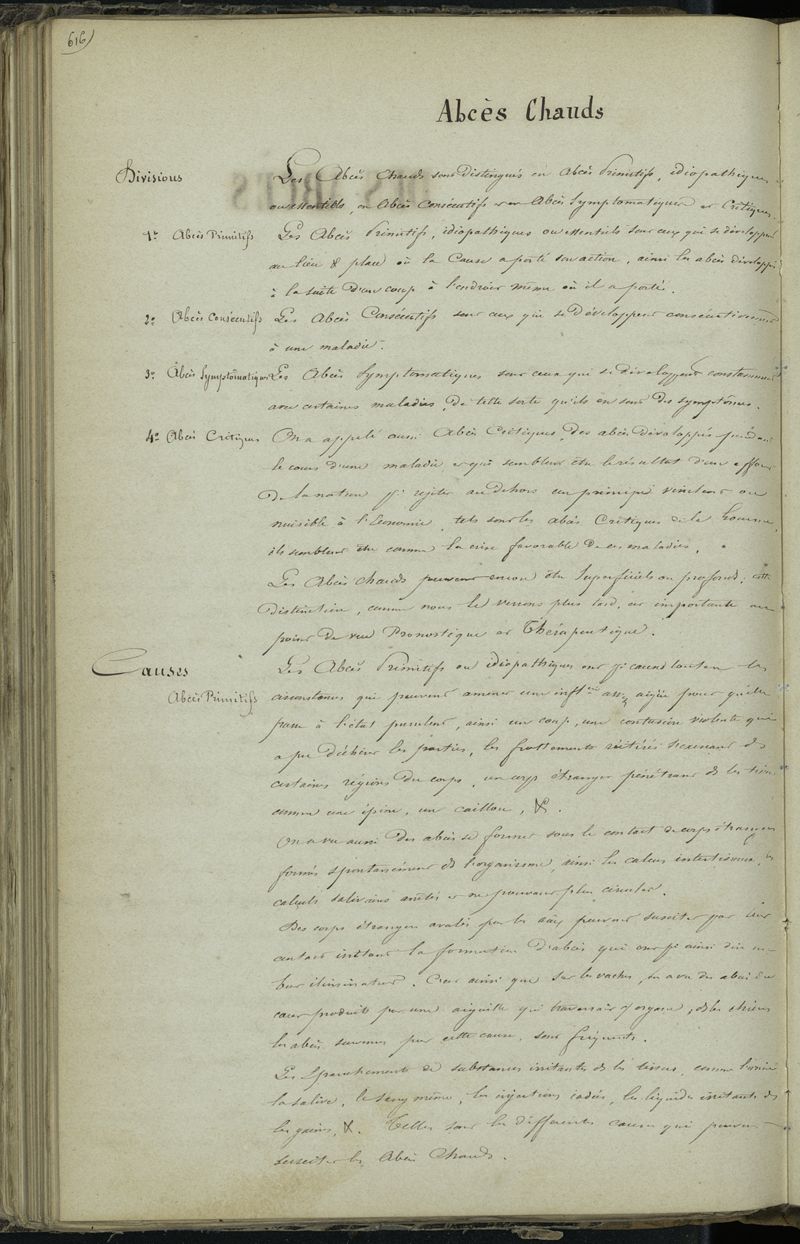 616
Abcès Chauds
Divisions
Les Abcès chauds sont distingués en Abcès Primitifs, idiopathiques
ou essentiels, en Abcès Consécutifs et en Abcès Symptomatiques et Critiques.
1º Abcès Primitifs
Les Abcès Primitifs, idiopathiques ou essentiels sont ceux qui se développent
au lieu & place où la Cause a porté son action, ainsi les abcès développés
à la suite d'un coup à l'endroit même où il a porté.
2º Abcès Consécutifs
Les Abcès Consécutifs sont ceux qui se développent consécutivement
à une maladie.
3º Abcès Symptômatiques
Les Abcès Symptomatiques sont ceux qui se développent constamment
avec certaines maladies, de telle sorte qu'ils en sont des symptômes.
4º Abcès Critiques
On a appelé aussi Abcès Critiques, des abcès développés pendant
le cours d'une maladie et qui semblent être le résultat d'un effort
de la nature pr rejeter au dehors un principe virulent ou
nuisible à l'économie, tels sont les abcès Critiques de la Gourme,
ils semblent être comme la crise favorable de ces maladies.
Les Abcès chauds peuvent encore être Superficiels ou profonds, cette
distinction, comme nous le verrons plus tard, est importante au
point de vue Pronostique et Thérapeutique.
Causes
Abcès Primitifs
Les Abcès Primitifs ou idiopathiques ont pr cause toutes les
circonstances qui peuvent amener une inflon assez aigüe pour qu'elle
passe à l'état purulent, ainsi un coup, une contusion violente qui
a pu déchirer les parties, les frottements réitérés s'exerçant ds
certaines régions du corps, un corps étranger pénétrant ds les tissus
comme une épine, un caillou, &.
On a vu aussi des abcès se former sous le contact de corps étrangers
formés spontanément ds l'organisme, ainsi les calculs intestinaux, les
calculs salivaires arrêtés et ne pouvant plus circuler.
Des corps étrangers avalés par les aux peuvent susciter par leur
contact irritant la formation d'abcès qui ont pr ainsi dire un
but éliminateur. C'est ainsi que sur les vaches, on a vu des abcès du
cœur produits par une aiguille qui traversait cet organe, ds les chiens
les abcès survenus par cette cause, sont fréquents.
Les épanchements de substances irritantes ds les tissus, comme l'urine
la salive, le sang même, les injections iodées, les liquides irritants ds
les gaines, &. Telles sont les différentes causes qui peuvent
susciter les Abcès Chauds.